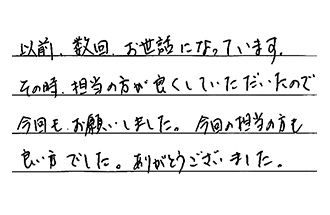 以前、数回、お世話になっています。
その時、担当の方が良くしていただいたので
今回も、お願いしました。今回の担当の方も
良い方でした。ありがとうございました。